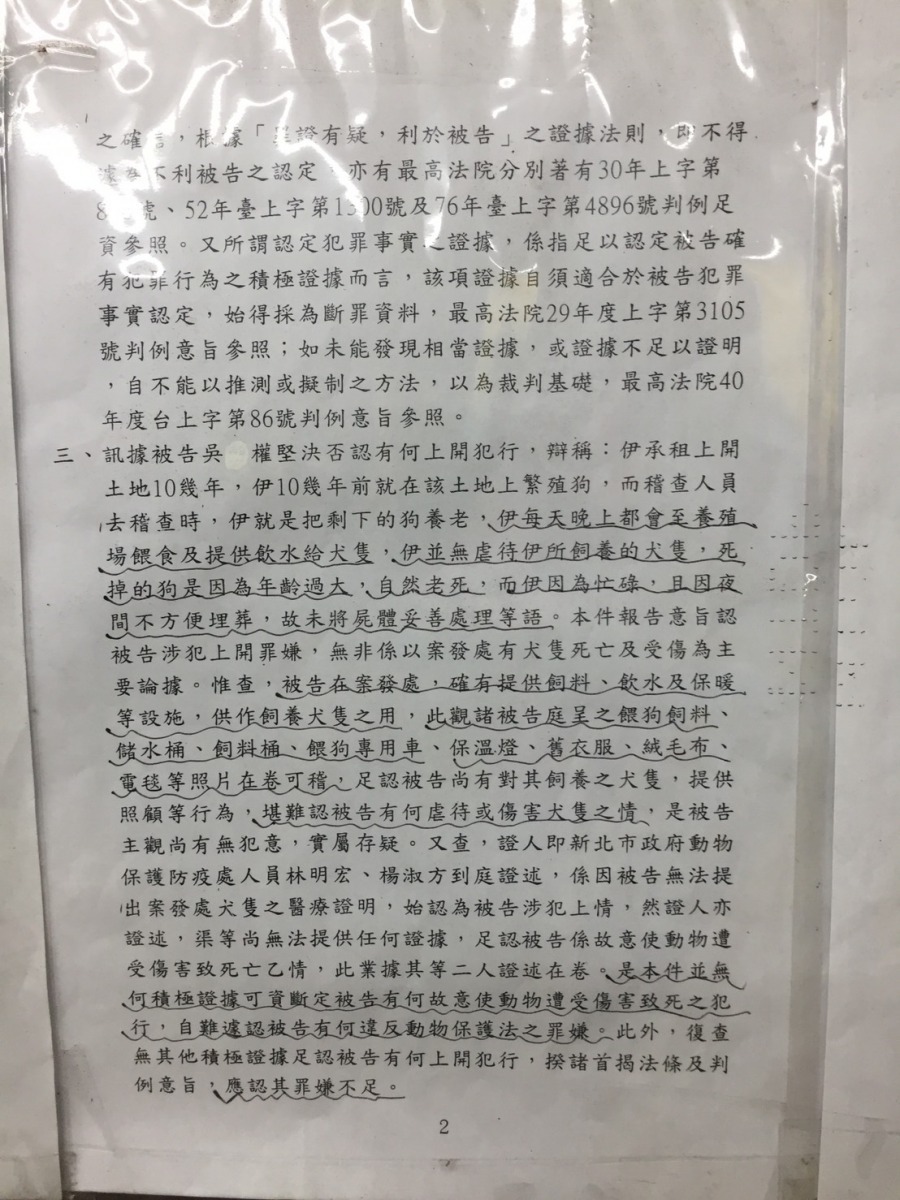 之確言，根據「罪證有疑，利於被告」之證據法則，即不得
為不利被告之認定，亦有最高法院分別著有30年上字第
號、52年臺上字第1300號及76年臺上字第4896號判例足
資參照。又所謂認定犯罪事實之證據，係指足以認定被告確
有犯罪行為之積極證據而言，該項證據自須適合於被告犯罪
事實認定，始得採為斷罪資料，最高法院29年度上字第3105
號判例意旨參照；如未能發現相當證據，或證據不足以證明
，自不能以推測或擬制之方法，以為裁判基礎，最高法院40
年度台上字第86號判例意旨參照。
三、訊據被告吳 權堅決否認有何上開犯行，辯稱：伊承租上開
土地10幾年，伊10幾年前就在該土地上繁殖狗，而稽查人員
去稽查時，伊就是把剩下的狗養老，伊每天晚上都會至養殖
場餵食及提供飲水給犬隻，伊並無虐待伊所飼養的犬隻，死
掉的狗是因為年齡過大，自然老死，而伊因為忙碌，且因夜
間不方便埋葬，故未將屍體妥善處理等語。本件報告意旨認
被告涉犯上開罪嫌，無非係以案發處有犬隻死亡及受傷為主
要論據。惟查，被告在案發處，確有提供飼料、飲水及保暖
等設施，供作飼養犬隻之用，此觀諸被告庭呈之餵狗飼料、
儲水桶、飼料桶、餵狗專用車、保溫燈、舊衣服、絨毛布、
電毯等照片在卷可稽，足認被告尚有對其飼養之犬隻，提供
照顧等行為，堪難認被告有何虐待或傷害犬隻之情，是被告
主觀尚有無犯意，實屬存疑。又查，證人即新北市政府動物
保護防疫處人員林明宏、楊淑方到庭證述，係因被告無法提
出案發處犬隻之醫療證明，始認為被告涉犯上情，然證人亦
證述，渠等尚無法提供任何證據，足認被告係故意使動物遭
受傷害致死亡乙情，此業據其等二人證述在卷。是本件並無
何積極證據可資斷定被告有何故意使動物遭受傷害致死之犯
行，自難遽認被告有何違反動物保護法之罪嫌。此外，復查
無其他積極證據足認被告有何上開犯行，揆諸首揭法條及判
例意旨，應認其罪嫌不足。
2